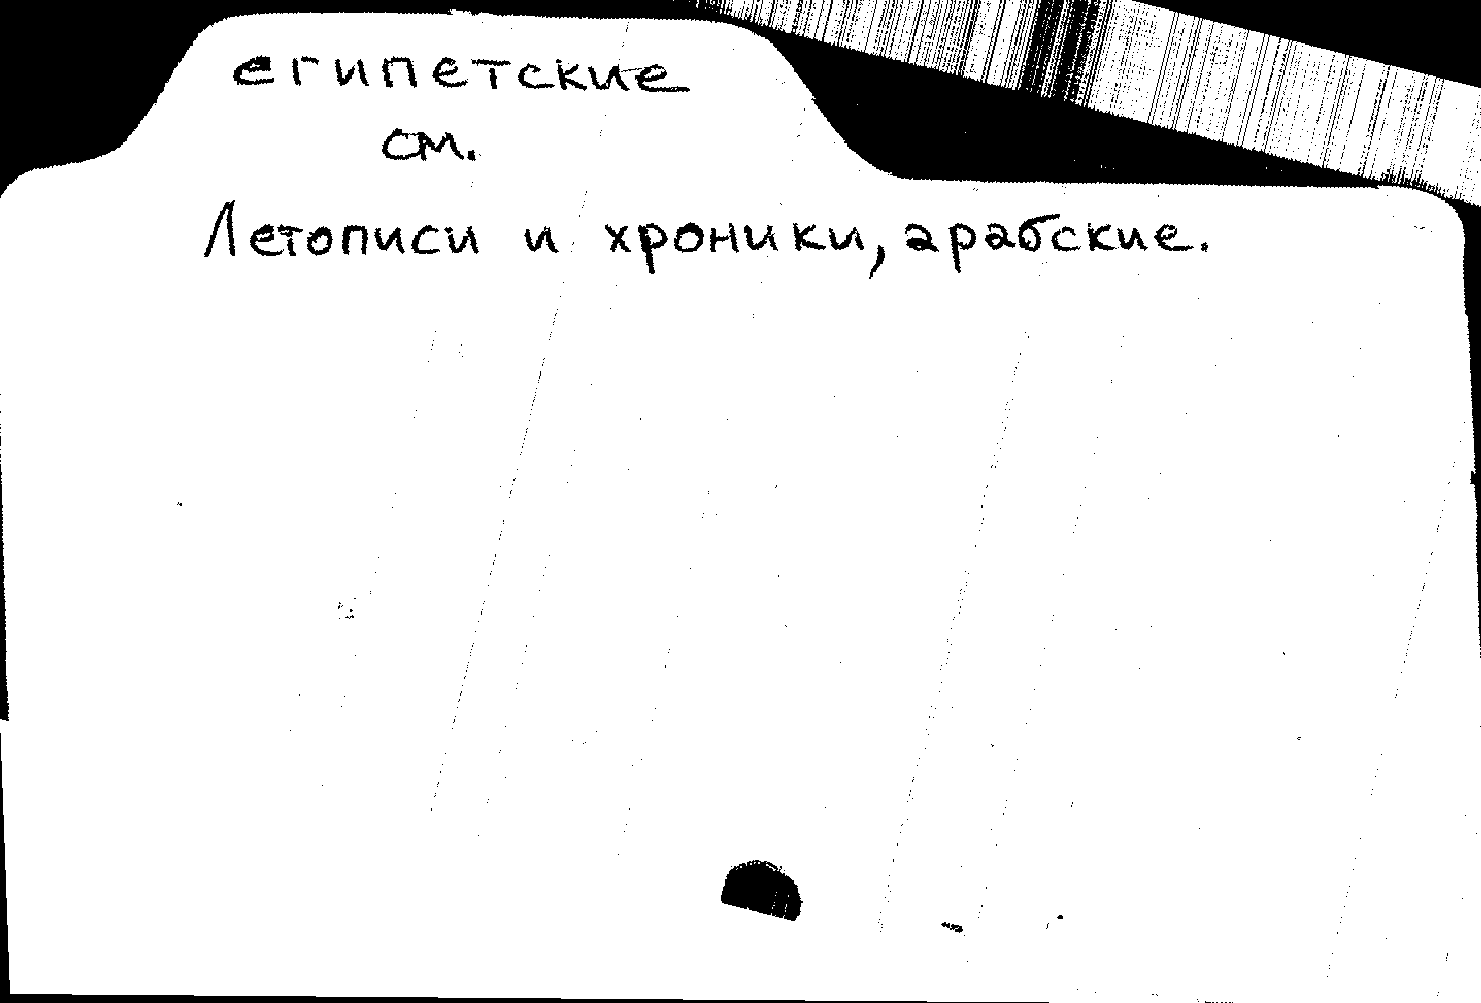 египетские
см.
Летописи и хроники, арабские.